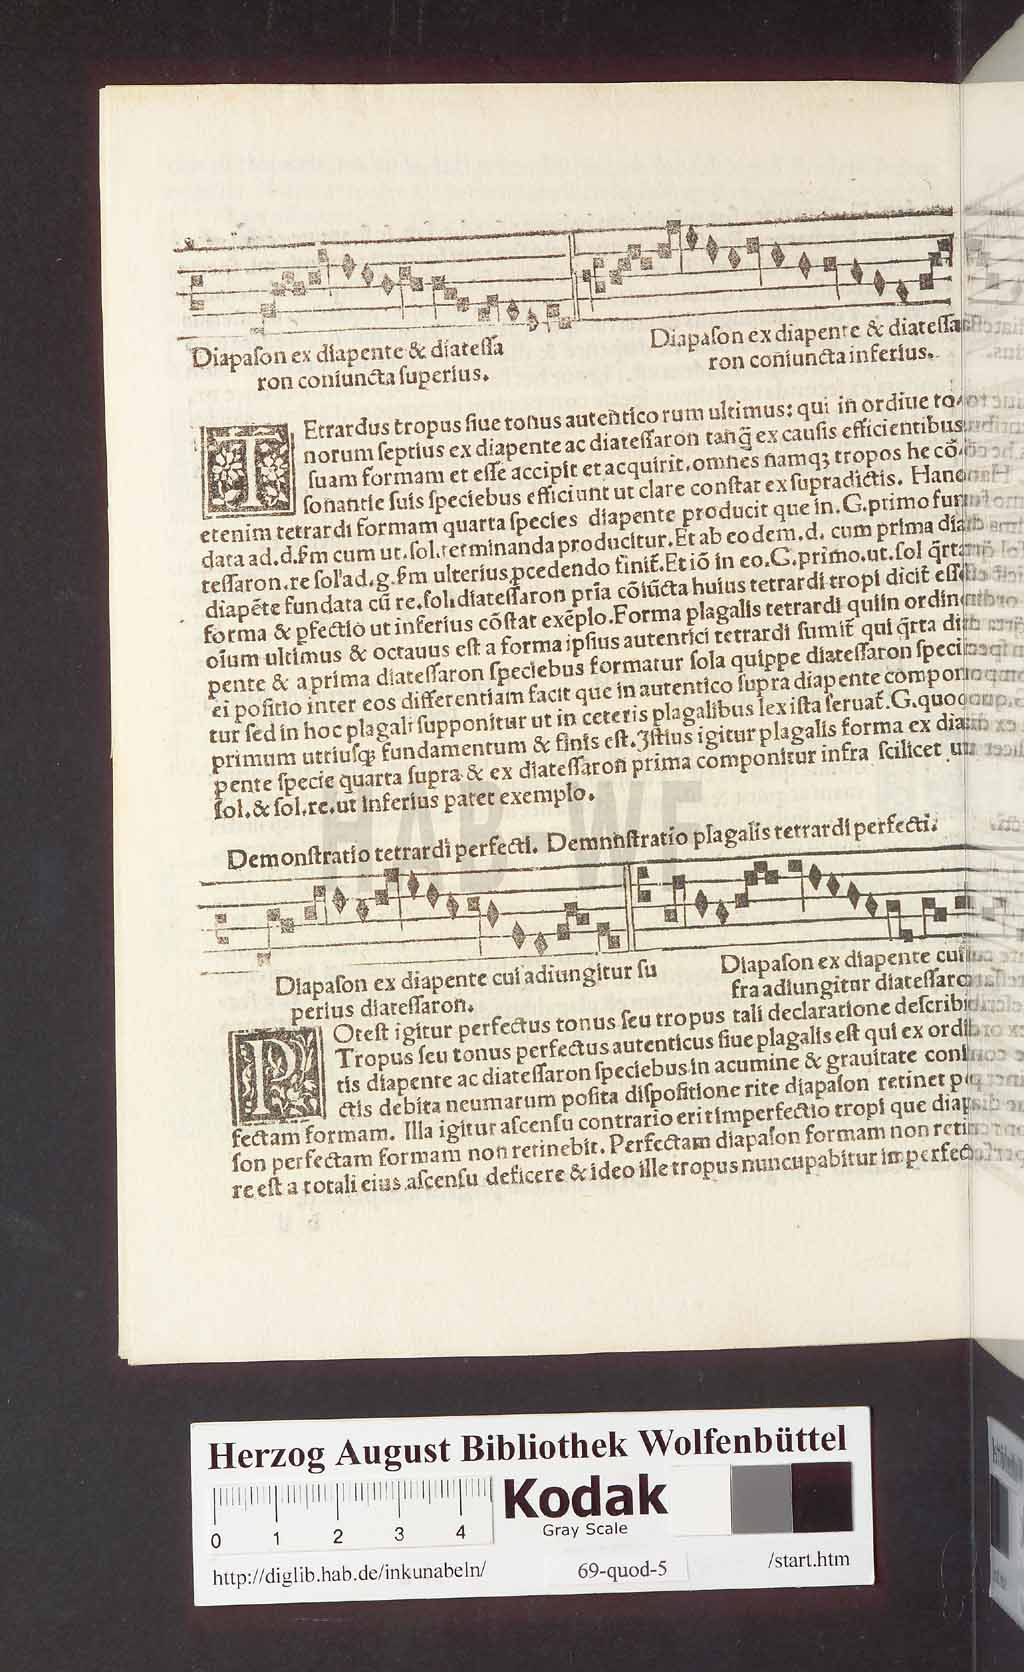 Diapaſon ex diapente & diateſſa
ron coniuncta ſuperius.
Diapaſon ex diapente & diateſſa
ron coniuncta inferius.
TEtrardus tropus ſiue tonus autenticorum ultimus: qui in ordiue to
norum ſeptius ex diapente ac diateſſaron tanq̃ ex cauſis efficientibus
ſuam formam et eſſe accipit et acquirit. omnes namq; tropos he cõ
ſonantie ſuis ſpeciebus efficiunt ut clare conſtat ex ſupradictis. Hanc
etenim tetrardi formam quarta ſpecies diapente producit que in. G. primo fun
data ad. d. ſm cum ut. ſol. terminanda producitur. Et ab eodem. d. cum prima dia
teſſaron. re ſol ad. g. ſm ulterius ꝓcedendo finit̃. Et iõ in eo. G. primo. ut. ſol q̃rta
diapẽte fundata cũ re. ſol. diateſſaron pria cõiũcta huius tetrardi tropi dicit̃ eſſe
forma & ꝑfectio ut inferius cõſtat exẽplo. Forma plagalis tetrardi qui in ordine
oĩum ultimus & octauus eſt a forma ipſius autentici tetrardi ſumit̃ qui q̃rta dia
pente & a prima diateſſaron ſpeciebus formatur ſola quippe diateſſaron ſpeci
ei poſitio inter eos differentiam facit que in autentico ſupra diapente componi
tur ſed in hoc plagali ſupponitur ut in ceteris plagalibus lex iſta ſeruat̃. G. quoq
primum utriuſq; fundamentum & finis eſt. Iſtius igitur plagalis forma ex dia
pente ſpecie quarta ſupra & ex diateſſaron prima componitur infra ſcilicet ut
ſol. & ſol. re. ut inferius patet exemplo.
Demonſtratio tetrardi perfecti. Demnnſtratio plagalis tetrardi perfecti.
Diapaſon ex diapente cui adiungitur ſu
perius diateſſaron.
Diapaſon ex diapente cui
fra adiungitur diateſſaro
POteſt igitur perfectus tonus ſeu tropus tali declaratione deſcribi
Tropus ſeu tonus perfectus autenticus ſiue plagalis eſt qui ex ordi
tis diapente ac diateſſaron ſpeciebus in acumine & grauitate coni
ctis debita neumarum poſita diſpoſitione rite diapaſon retinet p
fectam formam. Illa igitur aſcenſu contrario erit imperfectio tropi que diap
ſon perfectam formam non retinebit. Perfectam diapaſon formam non reti
re eſt a totali eius aſcenſu deficere & ideo ille tropus nuncupabitur imperfec
HAB-WF
Herzog August Bibliothek Wolfenbüttel
0 1 2 3 4
Kodak
Gray Scale
http://diglib.hab.de/inkunabeln/
69-quod-5
/start.htm